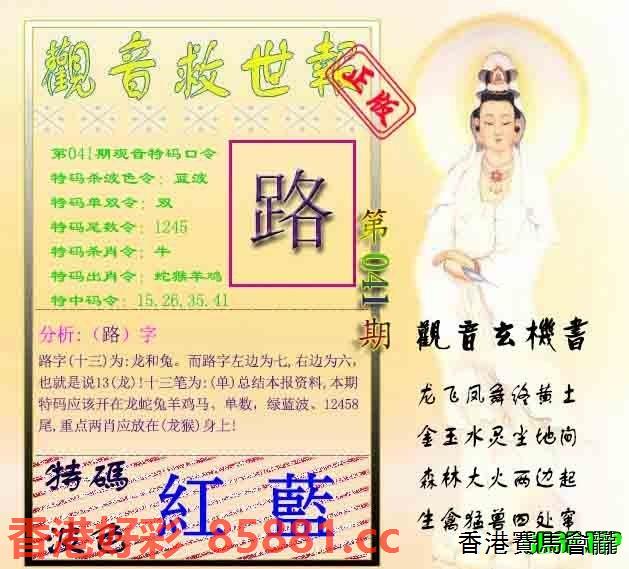 觀音救世報
正版
第041期观音特码口令
特码杀波色令：蓝波
特码单双令：双
特码尾数令：1245
特码杀肖令：牛
特码出肖令：蛇猴羊鸡
特中码令：15.26.35.41
路
第041期
分析:（路）字
路字(十三)为:龙和兔。而路字左边为七,右边为六,
也就是说13(龙)!十三笔为:(单)总结本报资料,本期
特码应该开在龙蛇兔羊鸡马、单数，绿蓝波、12458
尾,重点两肖应放在(龙猴)身上!
特碼
波色
紅 藍
香港好彩 85881.cc
觀音玄機書
龙飞凤舞络黄土
金玉水灵尘地间
森林大火两边起
生禽猛兽四处窜
香港賽馬會